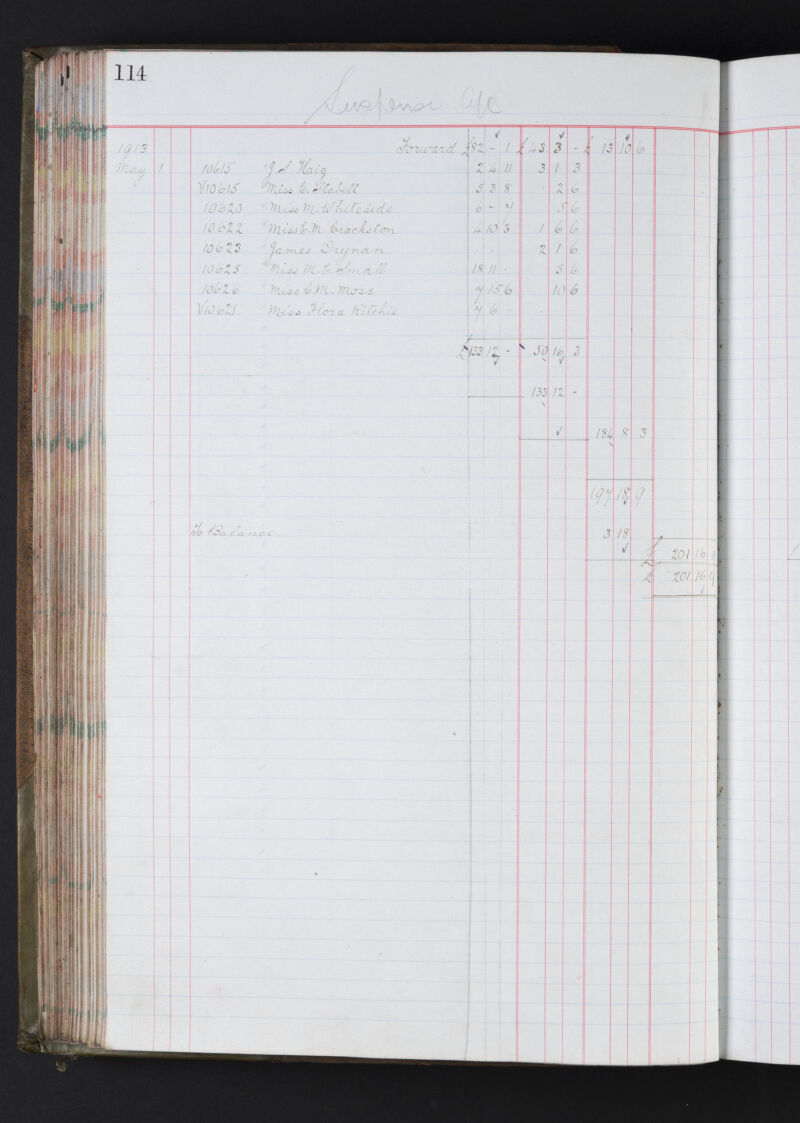 114
Suspense A/c
1913 Forward £82 - 1 £43 3 - £13 10 6
May 1 10615 J. S. Haig 2 4 11 3 1 3
√10615 " Miss 5 3 8 . 2 6
10620 " Miss M. Whiteside 6 - 7 5 6
10622 " Miss C. M. Crackston 4 10 3 1 6 6
10623 " James Drynan . . 2 1 6
10625 " Miss M. E. Small 18 11 . 5 6
10626 " Miss C. M. Moss 7 15 6 10 6
√10621 " Miss Flora Ritchie 7 6 - . .
£133 12 - 50 16 3
133 12 -
184 8 3
197 18 9
To Balance 3 18
£ 201 16 9
£ 201 16 9